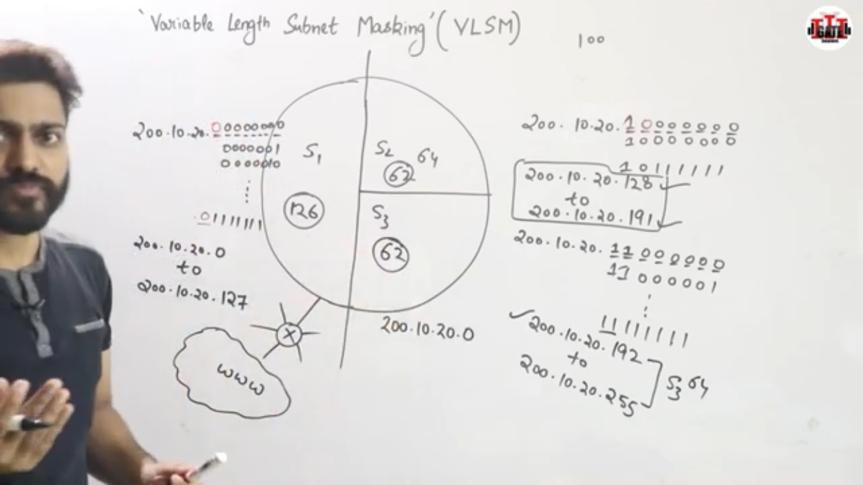 'Variable Length Subnet Masking' (VLSM)
100
200.10.20.00000000
0000001
0000010
01111111
200.10.20.0
to
200.10.20.127
S1
126
S2
62
64
S3
62
200.10.20.0
www
200.10.20.10000000
1000000
10111111
200.10.20.128
to
200.10.20.191
200.10.20.11000000
11000001
11111111
200.10.20.192
to
200.10.20.255
S3 64
GATE